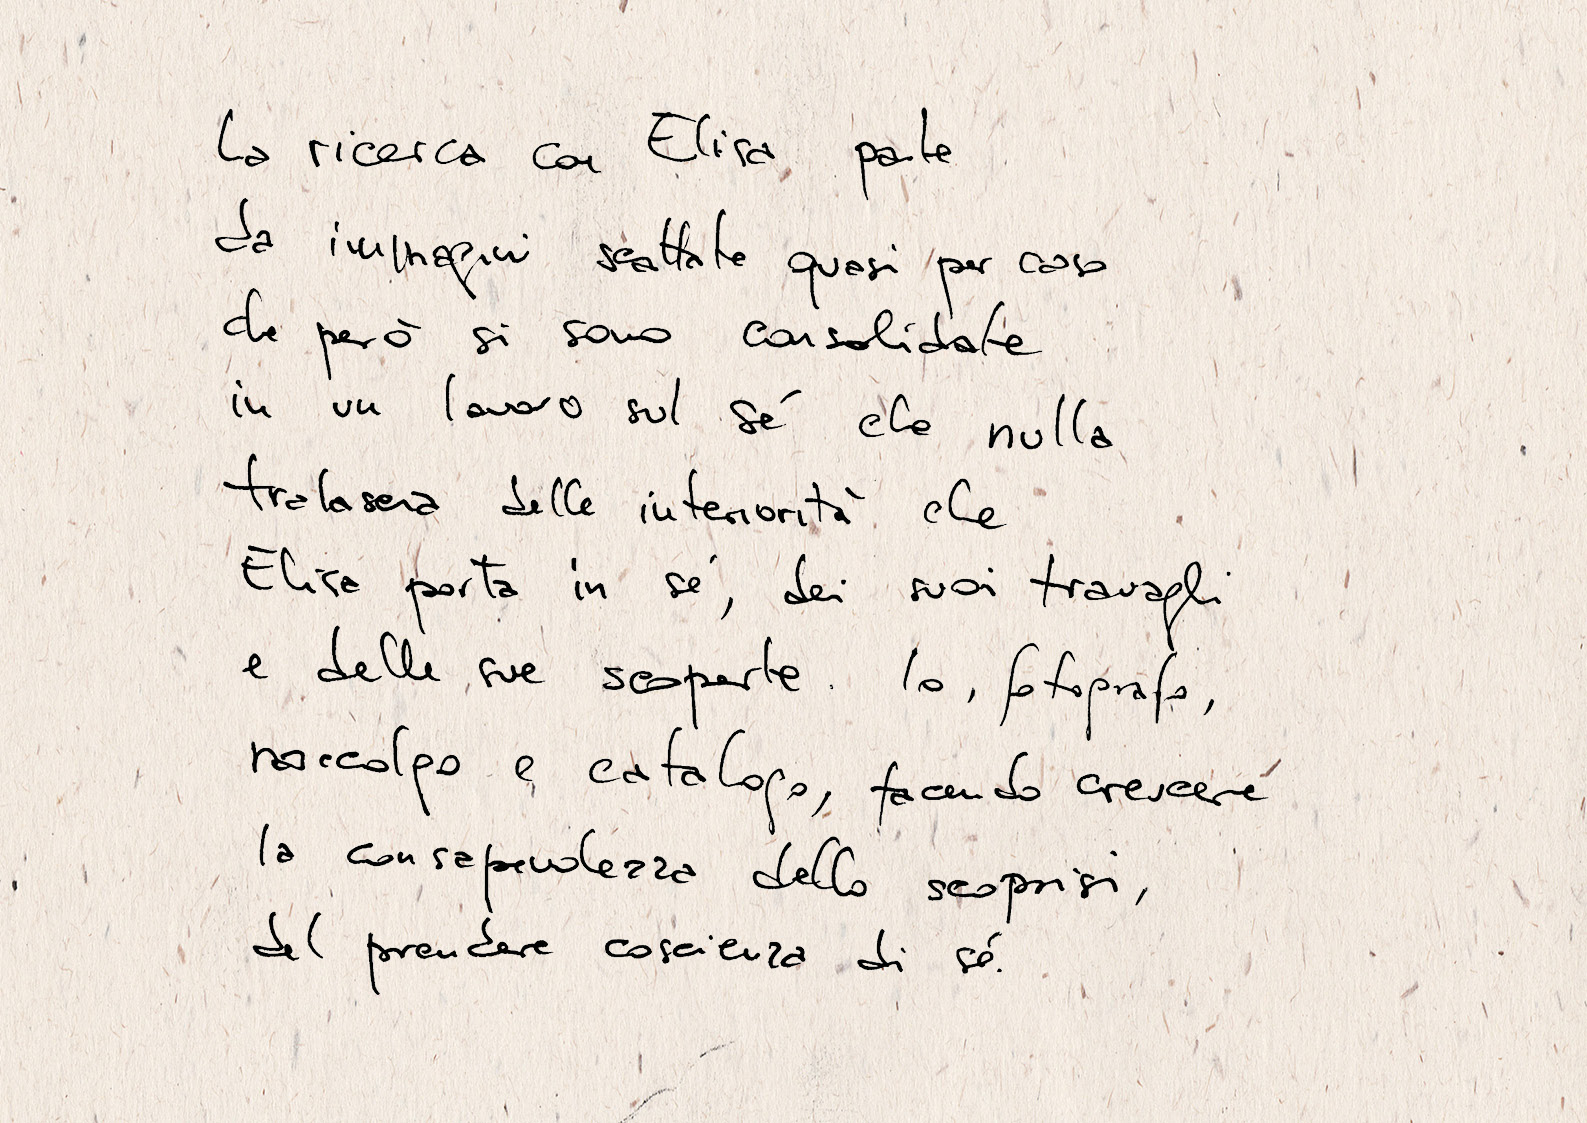 La ricerca con Elisa parte
da immagini scattate quasi per caso
che però si sono consolidate
in un lavoro sul sé che nulla
tralascia delle interiorità che
Elisa porta in sé, dei suoi travagli
e delle sue scoperte. Io, fotografo,
raccolgo e catalogo, facendo crescere
la consapevolezza dello scoprisi,
del prendere coscienza di sé.